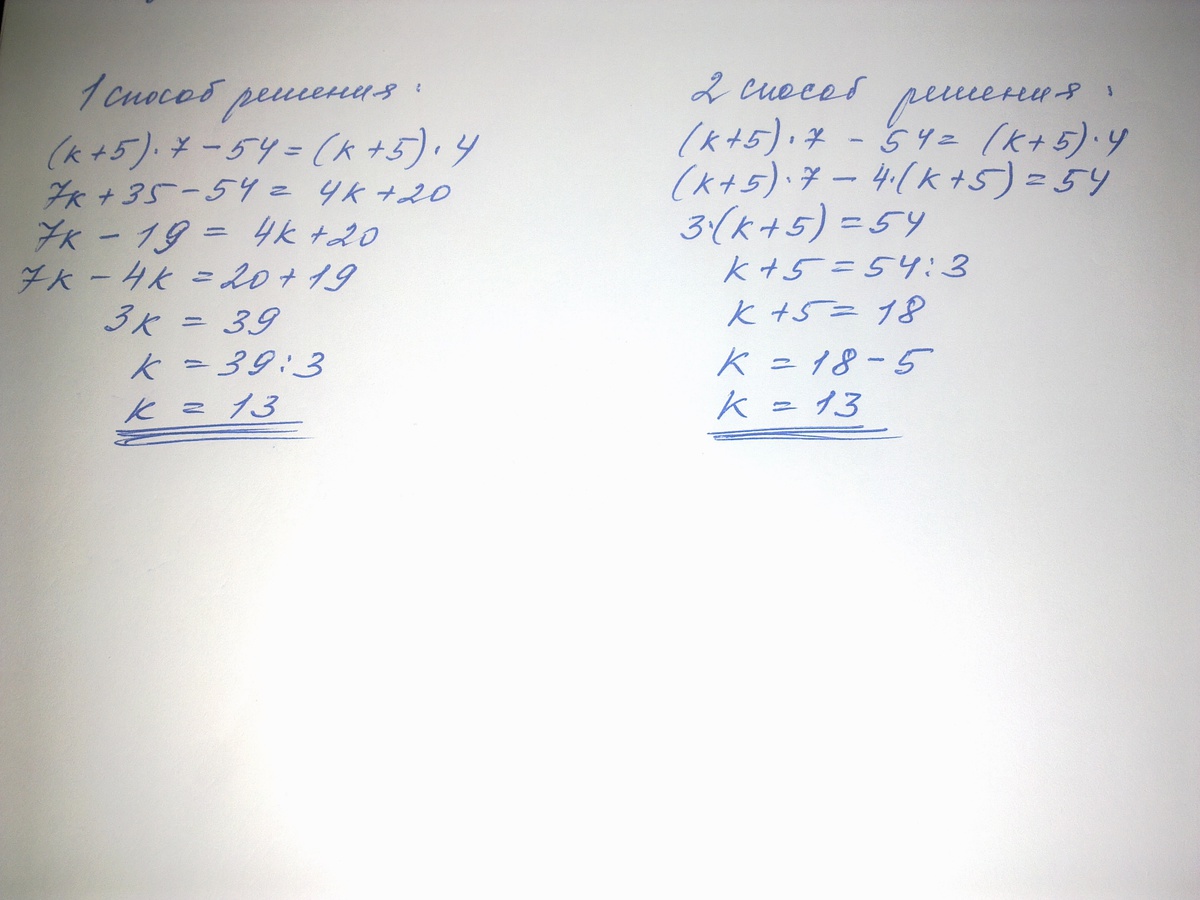 1 способ решения:
(k+5)·7-54=(k+5)·4
7k+35-54=4k+20
7k-19=4k+20
7k-4k=20+19
3k=39
k=39:3
k=13
2 способ решения:
(k+5)·7-54=(k+5)·4
(k+5)·7-4·(k+5)=54
3·(k+5)=54
k+5=54:3
k+5=18
k=18-5
k=13